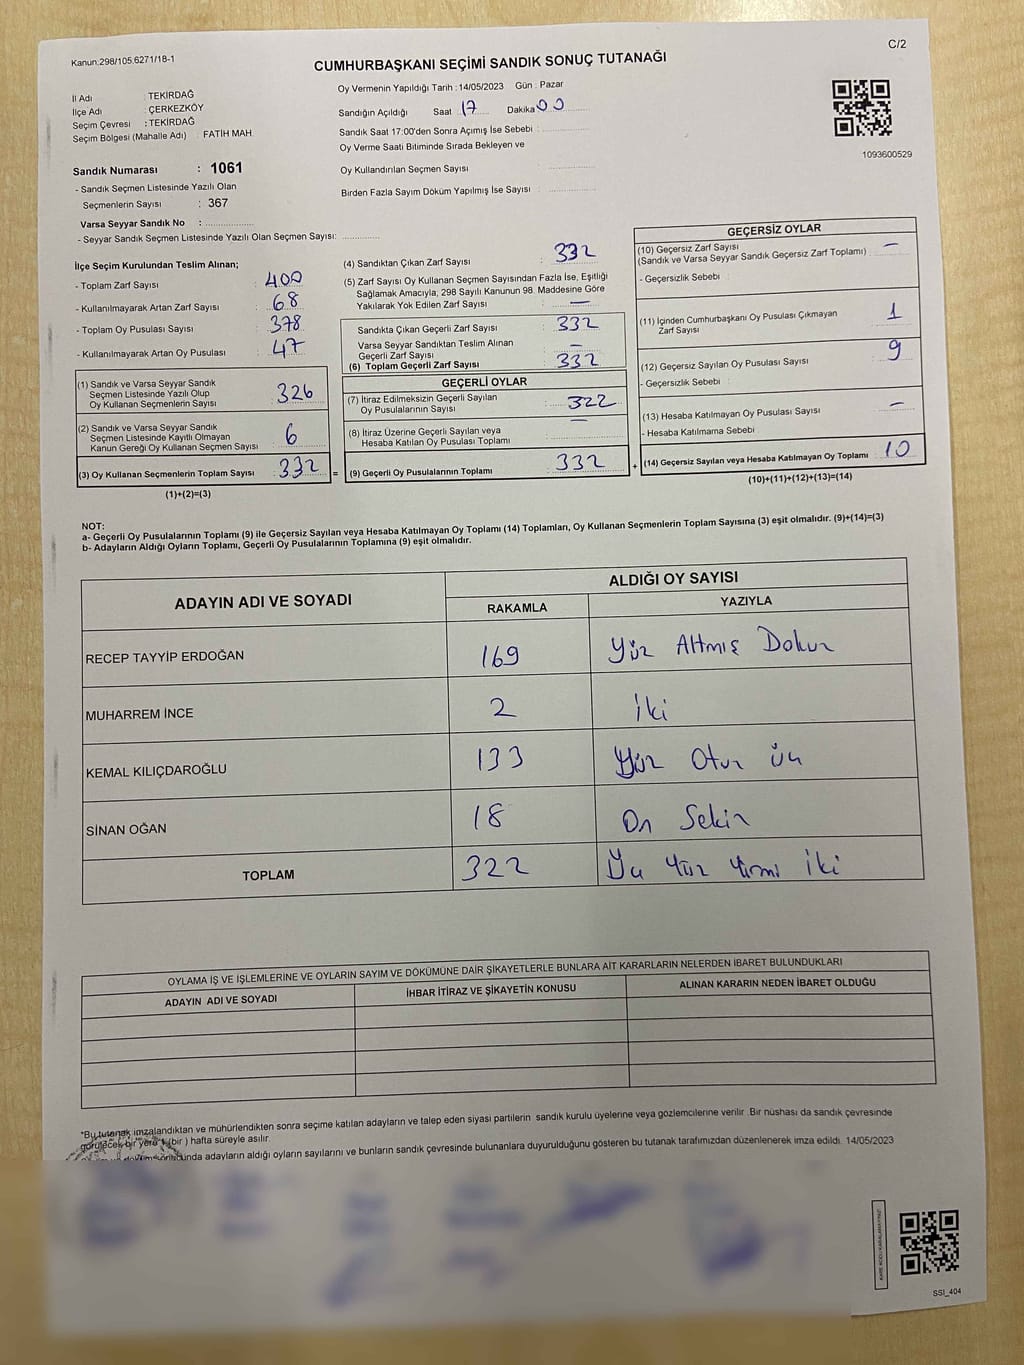 Kanun:298/105.6271/18-1
C/2
CUMHURBAŞKANI SEÇİMİ SANDIK SONUÇ TUTANAĞI
İl Adı : TEKİRDAĞ
İlçe Adı : ÇERKEZKÖY
Seçim Çevresi : TEKİRDAĞ
Seçim Bölgesi (Mahalle Adı) : FATİH MAH.
Oy Vermenin Yapıldığı Tarih : 14/05/2023 Gün : Pazar
Sandığın Açıldığı Saat 17 Dakika 00
Sandık Saat 17:00'den Sonra Açımış İse Sebebi :
Oy Verme Saati Bitiminde Sırada Bekleyen ve
Oy Kullandırılan Seçmen Sayısı
Birden Fazla Sayım Döküm Yapılmış İse Sayısı :
1093600529
Sandık Numarası : 1061
- Sandık Seçmen Listesinde Yazılı Olan
Seçmenlerin Sayısı : 367
Varsa Seyyar Sandık No :
- Seyyar Sandık Seçmen Listesinde Yazılı Olan Seçmen Sayısı:
İlçe Seçim Kurulundan Teslim Alınan;
- Toplam Zarf Sayısı : 400
- Kullanılmayarak Artan Zarf Sayısı : 68
- Toplam Oy Pusulası Sayısı : 378
- Kullanılmayarak Artan Oy Pusulası : 47
(1) Sandık ve Varsa Seyyar Sandık
Seçmen Listesinde Yazılı Olup
Oy Kullanan Seçmenlerin Sayısı : 326
(2) Sandık ve Varsa Seyyar Sandık
Seçmen Listesinde Kayıtlı Olmayan
Kanun Gereği Oy Kullanan Seçmen Sayısı : 6
(3) Oy Kullanan Seçmenlerin Toplam Sayısı : 332 =
(1)+(2)=(3)
(4) Sandıktan Çıkan Zarf Sayısı : 332
(5) Zarf Sayısı Oy Kullanan Seçmen Sayısından Fazla İse, Eşitliği
Sağlamak Amacıyla, 298 Sayılı Kanunun 98. Maddesine Göre
Yakılarak Yok Edilen Zarf Sayısı : —
Sandıkta Çıkan Geçerli Zarf Sayısı : 332
Varsa Seyyar Sandıktan Teslim Alınan
Geçerli Zarf Sayısı : —
(6) Toplam Geçerli Zarf Sayısı : 332
GEÇERLİ OYLAR
(7) İtiraz Edilmeksizin Geçerli Sayılan
Oy Pusulalarının Sayısı : 322
(8) İtiraz Üzerine Geçerli Sayılan veya
Hesaba Katılan Oy Pusulası Toplamı : —
(9) Geçerli Oy Pusulalarının Toplamı : 332 +
GEÇERSİZ OYLAR
(10) Geçersiz Zarf Sayısı
(Sandık ve Varsa Seyyar Sandık Geçersiz Zarf Toplamı) : —
- Geçersizlik Sebebi :
(11) İçinden Cumhurbaşkanı Oy Pusulası Çıkmayan
Zarf Sayısı : 1
(12) Geçersiz Sayılan Oy Pusulası Sayısı : 9
- Geçersizlik Sebebi :
(13) Hesaba Katılmayan Oy Pusulası Sayısı : —
- Hesaba Katılmama Sebebi :
(14) Geçersiz Sayılan veya Hesaba Katılmayan Oy Toplamı 10
(10)+(11)+(12)+(13)=(14)
NOT:
a- Geçerli Oy Pusulalarının Toplamı (9) ile Geçersiz Sayılan veya Hesaba Katılmayan Oy Toplamı (14) Toplamları, Oy Kullanan Seçmenlerin Toplam Sayısına (3) eşit olmalıdır. (9)+(14)=(3)
b- Adayların Aldığı Oyların Toplamı, Geçerli Oy Pusulalarının Toplamına (9) eşit olmalıdır.
ADAYIN ADI VE SOYADI
ALDIĞI OY SAYISI
RAKAMLA YAZIYLA
RECEP TAYYİP ERDOĞAN 169 Yüz Altmış Dokuz
MUHARREM İNCE 2 İki
KEMAL KILIÇDAROĞLU 133 Yüz Otuz üç
SİNAN OĞAN 18 On Sekiz
TOPLAM 322 Üç Yüz Yirmi iki
OYLAMA İŞ VE İŞLEMLERİNE VE OYLARIN SAYIM VE DÖKÜMÜNE DAİR ŞİKAYETLERLE BUNLARA AİT KARARLARIN NELERDEN İBARET BULUNDUKLARI
ADAYIN ADI VE SOYADI İHBAR İTİRAZ VE ŞİKAYETİN KONUSU ALINAN KARARIN NEDEN İBARET OLDUĞU
*Bu tutanak imzalandıktan ve mühürlendikten sonra seçime katılan adayların ve talep eden siyasi partilerin sandık kurulu üyelerine veya gözlemcilerine verilir. Bir nüshası da sandık çevresinde
görülecek bir yere 1 (bir ) hafta süreyle asılır.
adayların aldığı oyların sayılarını ve bunların sandık çevresinde bulunanlara duyurulduğunu gösteren bu tutanak tarafımızdan düzenlenerek imza edildi. 14/05/2023
SSI_404